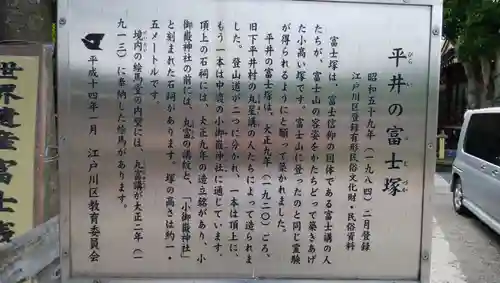 平井の富士塚
昭和五十九年（一九八四）二月登録
江戸川区登録有形民俗文化財・民俗資料
富士塚は、富士信仰の団体である富士講の人
たちが、富士山の容姿をかたちどって築きあげ
た小高い塚です。富士山に登ったのと同じ霊験
が得られるようにと願って築かれました。
平井の富士塚は、大正九年（一九二〇）ごろ、
旧下平井村の丸星講の人たちによって造られま
した。登山道が二つに分かれ、一本は頂上に、
もう一本は中腹の小御嶽神社に通じています。
頂上の石祠には、大正九年の造立銘があり、小
御嶽神社の前には、丸富の講紋と、「小御嶽神社」
と刻まれた石祠があります。塚の高さは約一・
五メートルです。
境内の絵馬堂の内壁には、丸富講が大正二年（一
九一三）に奉納した絵馬があります。
平成十四年一月　江戸川区教育委員会
世界遺産富士